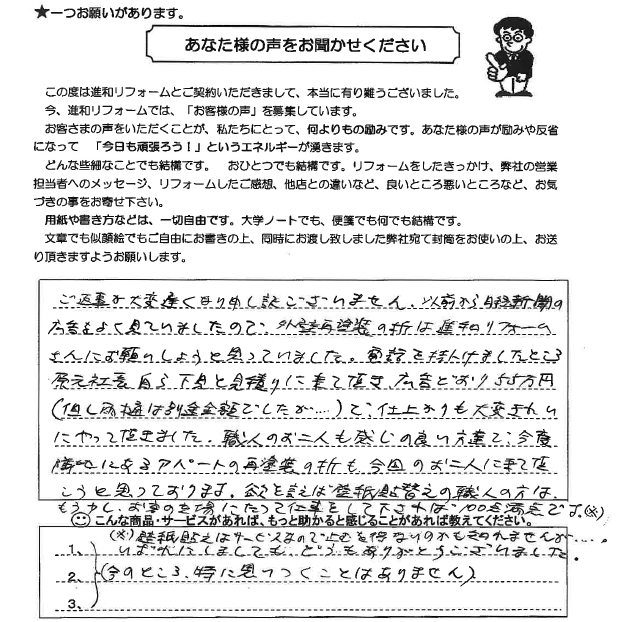 ★一つお願いがあります。
あなた様の声をお聞かせください
この度は進和リフォームとご契約いただきまして、本当に有り難うございました。
今、進和リフォームでは、「お客様の声」を募集しています。
お客さまの声をいただくことが、私たちにとって、何よりもの励みです。あなた様の声が励みや反省
になって　「今日も頑張ろう！」というエネルギーが湧きます。
どんな些細なことでも結構です。　おひとつでも結構です。リフォームをしたきっかけ、弊社の営業
担当者へのメッセージ、リフォームしたご感想、他店との違いなど、良いところ悪いところなど、お気
づきの事をお寄せ下さい。
用紙や書き方などは、一切自由です。大学ノートでも、便箋でも何でも結構です。
文章でも似顔絵でもご自由にお書きの上、同時にお渡し致しました弊社宛て封筒をお使いの上、お送
り頂きますようお願いします。
ご返事が大変遅くなり申し訳ございません。以前から日経新聞の
広告をよく見ていましたので、外壁再塗装の折は進和リフォーム
さんにお願いしようと思っていました。電話を掛けましたところ
原元社長自ら下見と見積りに来て頂き、広告どおり55万円
(但し雨樋は別途金額でしたが……)で、仕上がりも大変きれい
にやって頂きました。職人のお二人も感じの良い方達で、今度
隣地にあるアパートの再塗装の折も、今回のお二人に来て頂
こうと思っております。欲を言えば壁紙貼替えの職人の方は、
もう少し、お客の立場にたって仕事をして下されば100点満点です。(※)
こんな商品・サービスがあれば、もっと助かると感じることがあれば教えてください。
(※)壁紙貼替えはサービスなので止むを得ないのかも知れませんが……。
1、 いずれにしましても、どうもありがとうございました。
2、 (今のところ、特に思いつくことはありません)
3、